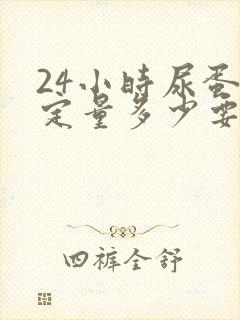 24小時尿蛋
定量多少要
四裤全舒